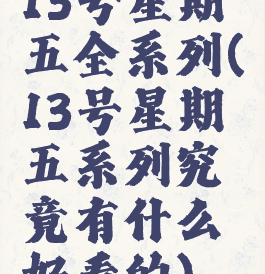 13号星期
五全系列(
13号星期
五系列究
竟有什么
好看的)